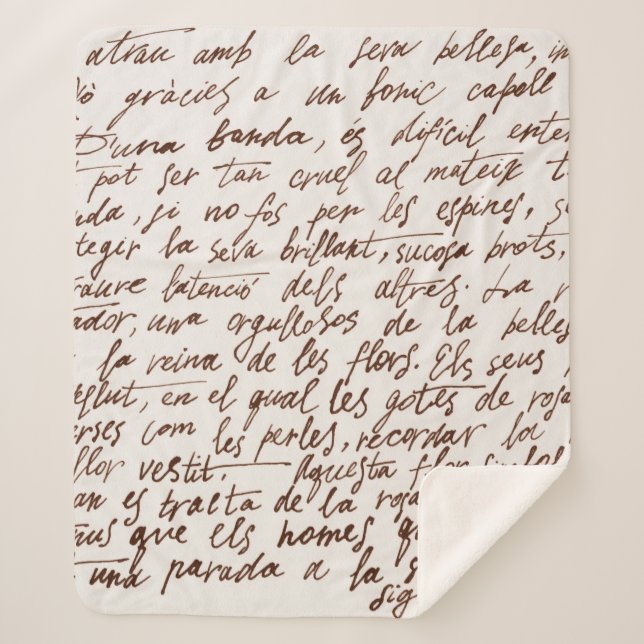 atrau amb la seva bellesa, in
gràcies a un bonic capell
D'una banda, és difícil enten
pot ser tan cruel al mateix t
nda, si no fos per les espines, s
tegir la seva brillant, sucosa brots,
traure l'atenció dels altres. La r
ador, una orgullosos de la belles
la reina de les flors. Els seus
ellut, en el qual les gotes de rosa
erses com les perles, recordar la
flor vestit. Aquesta flor simbol
an es tracta de la rosa
que els homes q
una parada a la s
sig